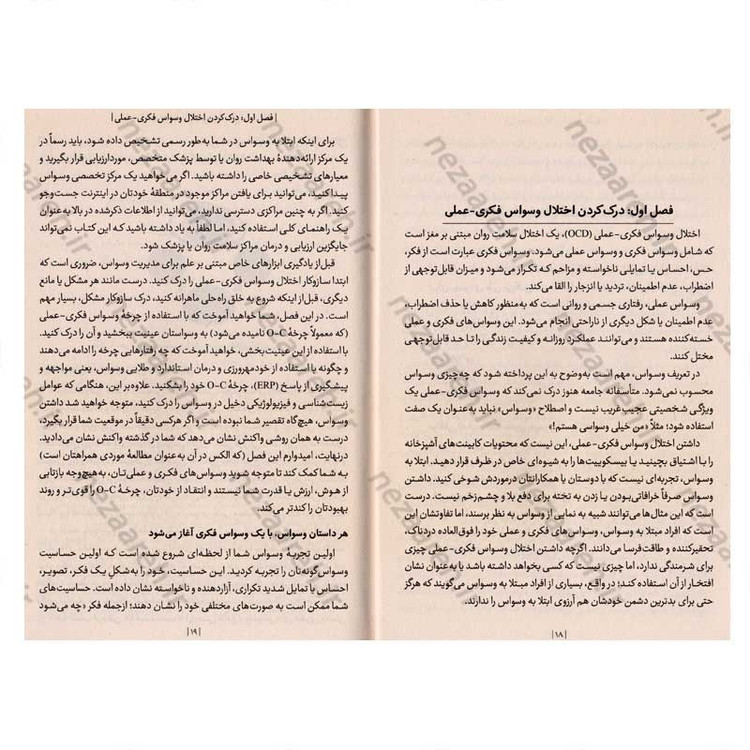 فصل اول: درک‌کردن اختلال وسواس فکری-عملی
اختلال وسواس فکری-عملی (OCD)، یک اختلال سلامت روان مبتنی بر مغز است
که شامل وسواس فکری و وسواس عملی می‌شود. وسواس فکری عبارت است از فکر،
حس، احساس یا تمایلی ناخواسته و مزاحم که تکرار می‌شود و میزان قابل‌توجهی از
اضطراب، عدم اطمینان، تردید یا انزجار را القا می‌کند.
وسواس عملی، رفتاری جسمی و روانی است که به‌منظور کاهش یا حذف اضطراب،
عدم اطمینان یا شکل دیگری از ناراحتی انجام می‌شود. این وسواس‌های فکری و عملی
خسته‌کننده هستند و می‌توانند عملکرد روزانه و کیفیت زندگی را تا حد قابل‌توجهی
مختل کنند.
در تعریف وسواس، مهم است به‌وضوح به این پرداخته شود که چه‌چیزی وسواس
محسوب نمی‌شود. متأسفانه جامعه هنوز درک نمی‌کند که وسواس فکری-عملی یک
ویژگی شخصیتی عجیب‌غریب نیست و اصطلاح «وسواس» نباید به‌عنوان یک صفت
استفاده شود؛ مثلاً «من خیلی وسواسی هستم!»
داشتن اختلال وسواس فکری-عملی، این نیست که محتویات کابینت‌های آشپزخانه
را با اشتیاق بچینید یا بیسکوییت‌ها را به شیوه‌ای خاص در ظرف قرار دهید. ابتلا به
وسواس، تجربه‌ای نیست که با دوستان یا همکارانتان درموردش شوخی کنید. داشتن
وسواس صرفاً خرافاتی‌بودن یا زدن به تخته برای دفع بلا و چشم‌زخم نیست. درست
است که این مثال‌ها می‌توانند شبیه به نمایی از وسواس به نظر برسند، اما تفاوتشان این
است که افراد مبتلا به وسواس، وسواس‌های فکری و عملی خود را فوق‌العاده دردناک،
تحقیرکننده و طاقت‌فرسا می‌دانند. اگرچه داشتن اختلال وسواس فکری-عملی چیزی
برای شرمندگی ندارد، اما چیزی نیست که کسی بخواهد داشته باشد یا به‌عنوان نشان
افتخار از آن استفاده کند؛ در واقع، بسیاری از افراد مبتلا به وسواس می‌گویند که هرگز
حتی برای بدترین دشمن خودشان هم آرزوی ابتلا به وسواس را ندارند.
|۱۸|
| فصل اول: درک‌کردن اختلال وسواس فکری-عملی |
برای اینکه ابتلا به وسواس در شما به‌طور رسمی تشخیص داده شود، باید رسماً در
یک مرکز ارائه‌دهندهٔ بهداشت روان یا توسط پزشک متخصص، موردارزیابی قرار بگیرید و
معیارهای تشخیصی خاصی را داشته باشید. اگر می‌خواهید یک مرکز تخصصی وسواس
پیدا کنید، می‌توانید برای یافتن مراکز موجود در منطقهٔ خودتان در اینترنت جست‌وجو
کنید. اگر به چنین مراکزی دسترسی ندارید، می‌توانید از اطلاعات ذکرشده در بالا به عنوان
یک راهنمای کلی استفاده کنید، اما لطفاً به یاد داشته باشید که این کتاب نمی‌تواند
جایگزین ارزیابی و درمان مراکز سلامت روان یا پزشک شود.
قبل‌از یادگیری ابزارهای خاص مبتنی بر علم برای مدیریت وسواس، ضروری است که
ابتدا سازوکار اختلال وسواس فکری-عملی را درک کنید. درست مانند هر مشکل یا مانع
دیگری، قبل‌از اینکه شروع به خلق راه‌حلی ماهرانه کنید، درک سازوکار مشکل، بسیار مهم
است. در این فصل، شما خواهید آموخت که با استفاده از چرخهٔ وسواس فکری-عملی
(که معمولاً چرخهٔ O-C نامیده می‌شود) به وسواستان عینیت ببخشید و آن را درک کنید.
با استفاده از این عینیت‌بخشی، خواهید آموخت که چه رفتارهایی چرخه را ادامه می‌دهند
و چگونه با استفاده از خودمهرورزی و درمان استاندارد و طلایی وسواس، یعنی مواجهه و
پیشگیری از پاسخ (ERP)، چرخهٔ O-C خود را بشکنید. علاوه‌بر این، هنگامی که عوامل
زیست‌شناسی و فیزیولوژیکی دخیل در وسواس را درک کنید، متوجه خواهید شد
وسواس، هیچ‌گاه تقصیر شما نبوده است و اگر هرکسی دقیقاً در موقعیت شما قرار بگیرد،
درست به همان روشی واکنش نشان می‌دهد که شما در گذشته واکنش نشان می‌دادید.
درنهایت، امیدوارم این فصل (که الکس در آن به‌عنوان مطالعهٔ موردی همراهتان است)
به شما کمک کند تا متوجه شوید وسواس‌های فکری و عملی‌تان، به‌هیچ‌وجه بازتابی
از هوش، ارزش یا قدرت شما نیستند و انتقاد از خودتان، چرخهٔ O-C را قوی‌تر و روند
بهبودتان را کندتر می‌کند.
هر داستان وسواس، با یک وسواس فکری آغاز می‌شود
اولین تجربهٔ وسواس شما از لحظه‌ای شروع شده است که اولین حساسیت
وسواس‌گونه‌تان را تجربه کردید. این حساسیت، خود را به‌شکل یک فکر، تصویر،
احساس یا تمایل شدید تکراری، آزاردهنده و ناخواسته نشان داده است. حساسیت‌های
شما ممکن است به صورت‌های مختلفی خود را نشان دهند؛ ازجمله فکر «چه می‌شود
|۱۹|
nezaarah.ir